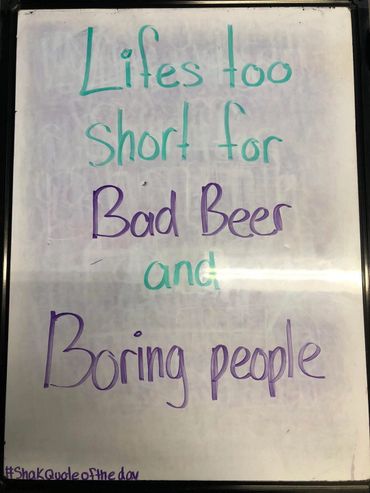 Lifes too
short for
Bad Beer
and
Boring people
#ShakQuoteoftheday